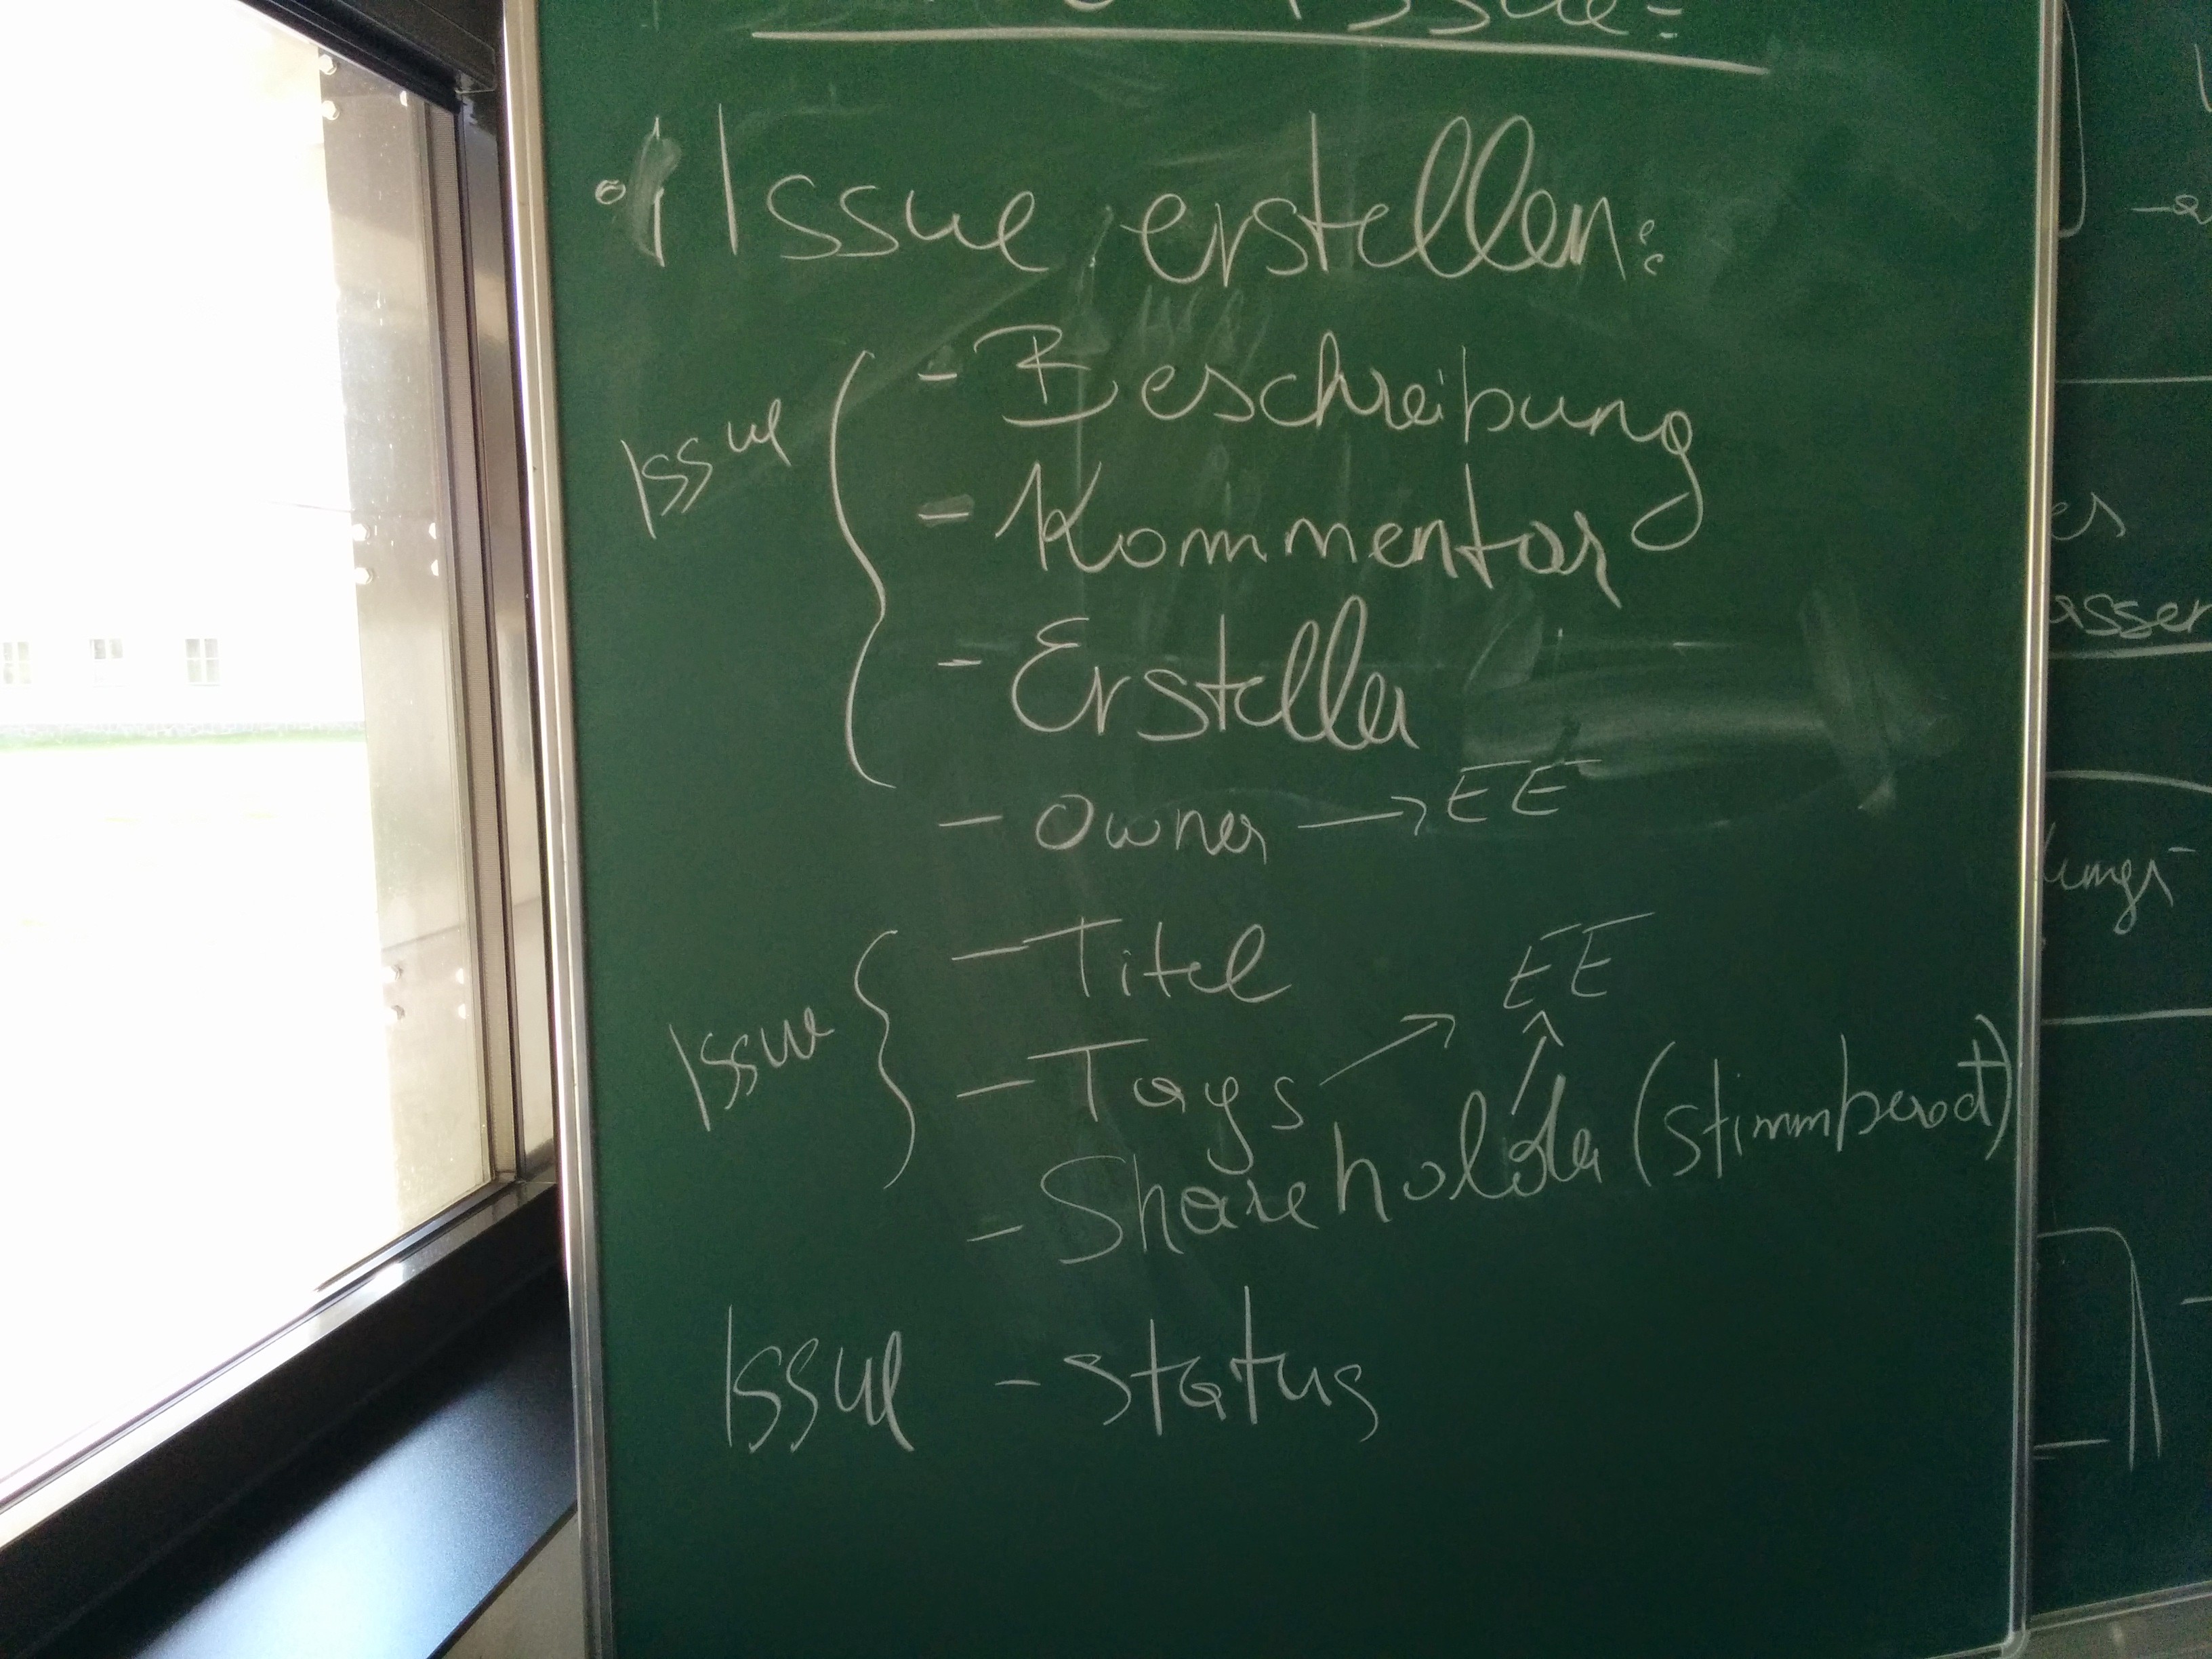 Issue:
Issue erstellen:
Issue
- Beschreibung
- Kommentar
- Ersteller
- Owner → EE
Issue
- Titel
EE
- Tags
- Shareholder (stimmberecht)
Issue - Status
es
assen